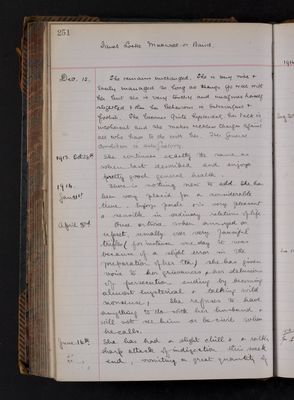 251
Sarah Locke Maxwell or Baird.
Dec. 12. She remains unchanged. She is very nice &
easily managed so long as things go well with
her but she is very touchy and imagines herself
neglected & then her behaviour is
foolish. She becomes quite hysterical, her talk is
incoherent and she makes reckless charges against
all who have to do with her. Her general
condition is satisfactory.
1913. Oct. 25th She continues exactly the same as
when last described and enjoys
pretty good general health.
1914. There is nothing new to add. She has
been very placid for a considerable
time. is very pleasant
& sensible in ordinary relations of life.
April 3rd Once or twice when annoyed or
upset, usually over very fanciful
trifles, for instance one day it was
because of a slight error in the
preparation of her tea, she has given
voice to her grievances & her delusions
of persecution ending by becoming
almost hysterical & talking wild
nonsense. She refuses to have
anything to do with her husband &
will not see him or be civil when
he calls.
June 16th She has had a slight chill & a rather
sharp attack of indigestion this week
end, vomiting a great quantity of